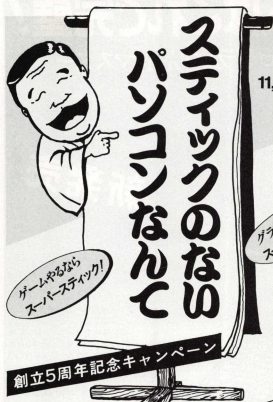 スティックのない
パソコンなんて
11,
ゲームやるなら
スーパースティック!
グラ
ス
創立5周年記念キャンペーン